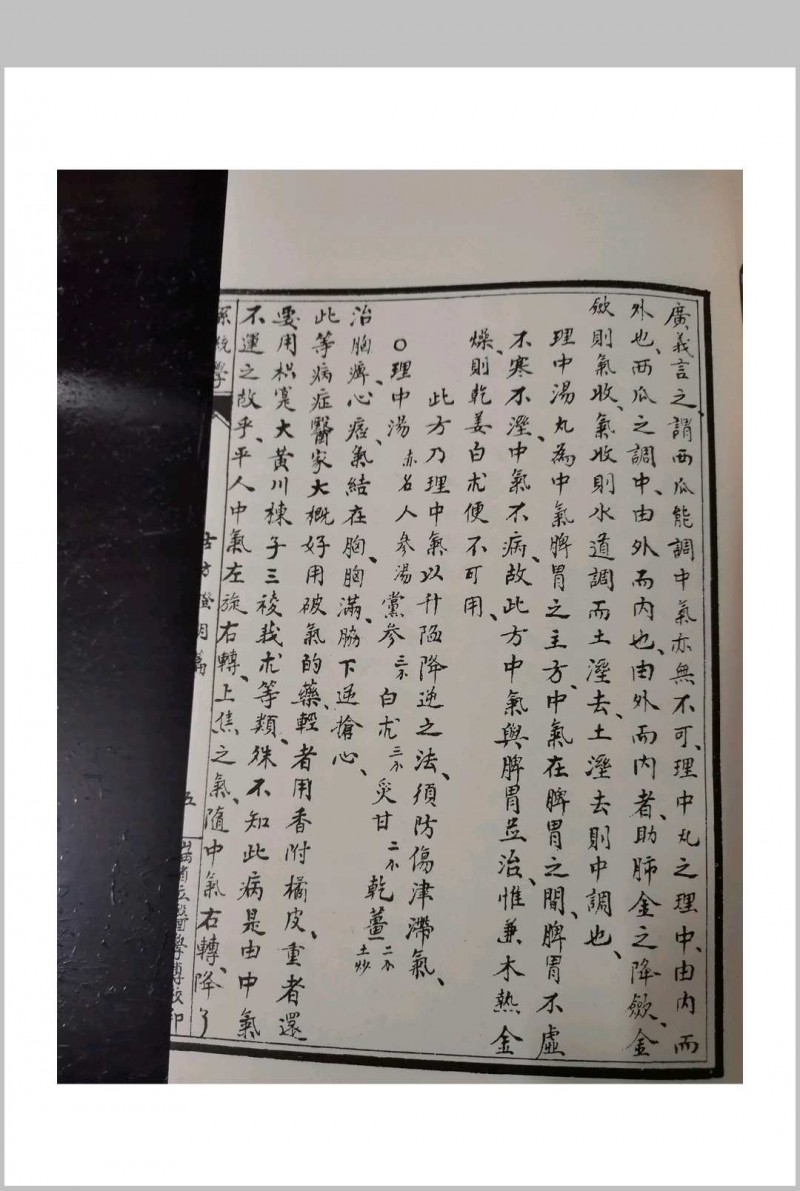 廣義言之、謂西瓜能調中氣亦無不可、理中丸之理中、由內而
外也、西瓜之調中、由外而內也、由外而內者、助肺金之降斂、金
斂則氣收、氣收則水道調而土溼去、土溼去則中調也、
理中湯丸為中氣脾胃之主方、中氣在脾胃之間、脾胃不虛
不寒不溼、中氣不病、故此方中氣與脾胃并治、惟兼木熱金
燥、則乾姜白朮便不可用、
此方乃理中氣以升陷降逆之法、須防傷津滯氣、
○理中湯 亦名人參湯 黨參 三不 白朮 三不 炙甘 二不 乾薑 二不 土炒
治胸痹、心痞、氣結在胸、胸滿、脇下逆搶心、
此等病症醫家大概好用破氣的藥、輕者用香附橘皮、重者還
要用枳寔大黃川楝子三稜莪朮等類、殊不知此病是由中氣
不運之故乎、平人中氣左旋右轉、上焦之氣、隨中氣右轉、降了
系統學
古方證明篇
五
醫學專校印